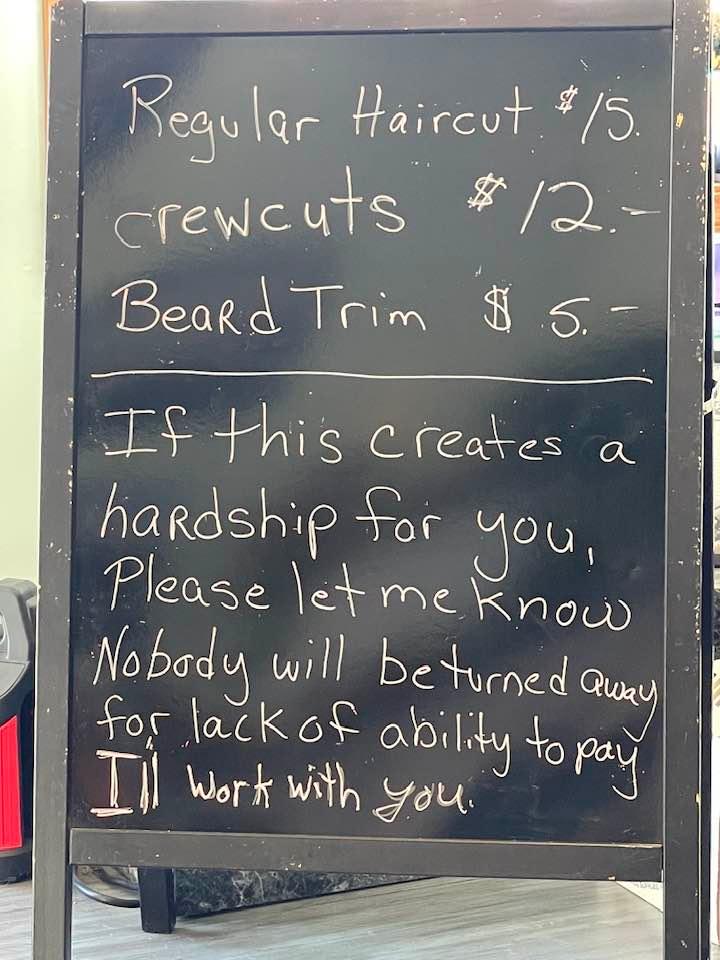 Regular Haircut $15.
crewcuts $12.-
Beard Trim $5.-
If this creates a
hardship for you,
Please let me know
Nobody will be turned away
for lack of ability to pay
I'll work with you.